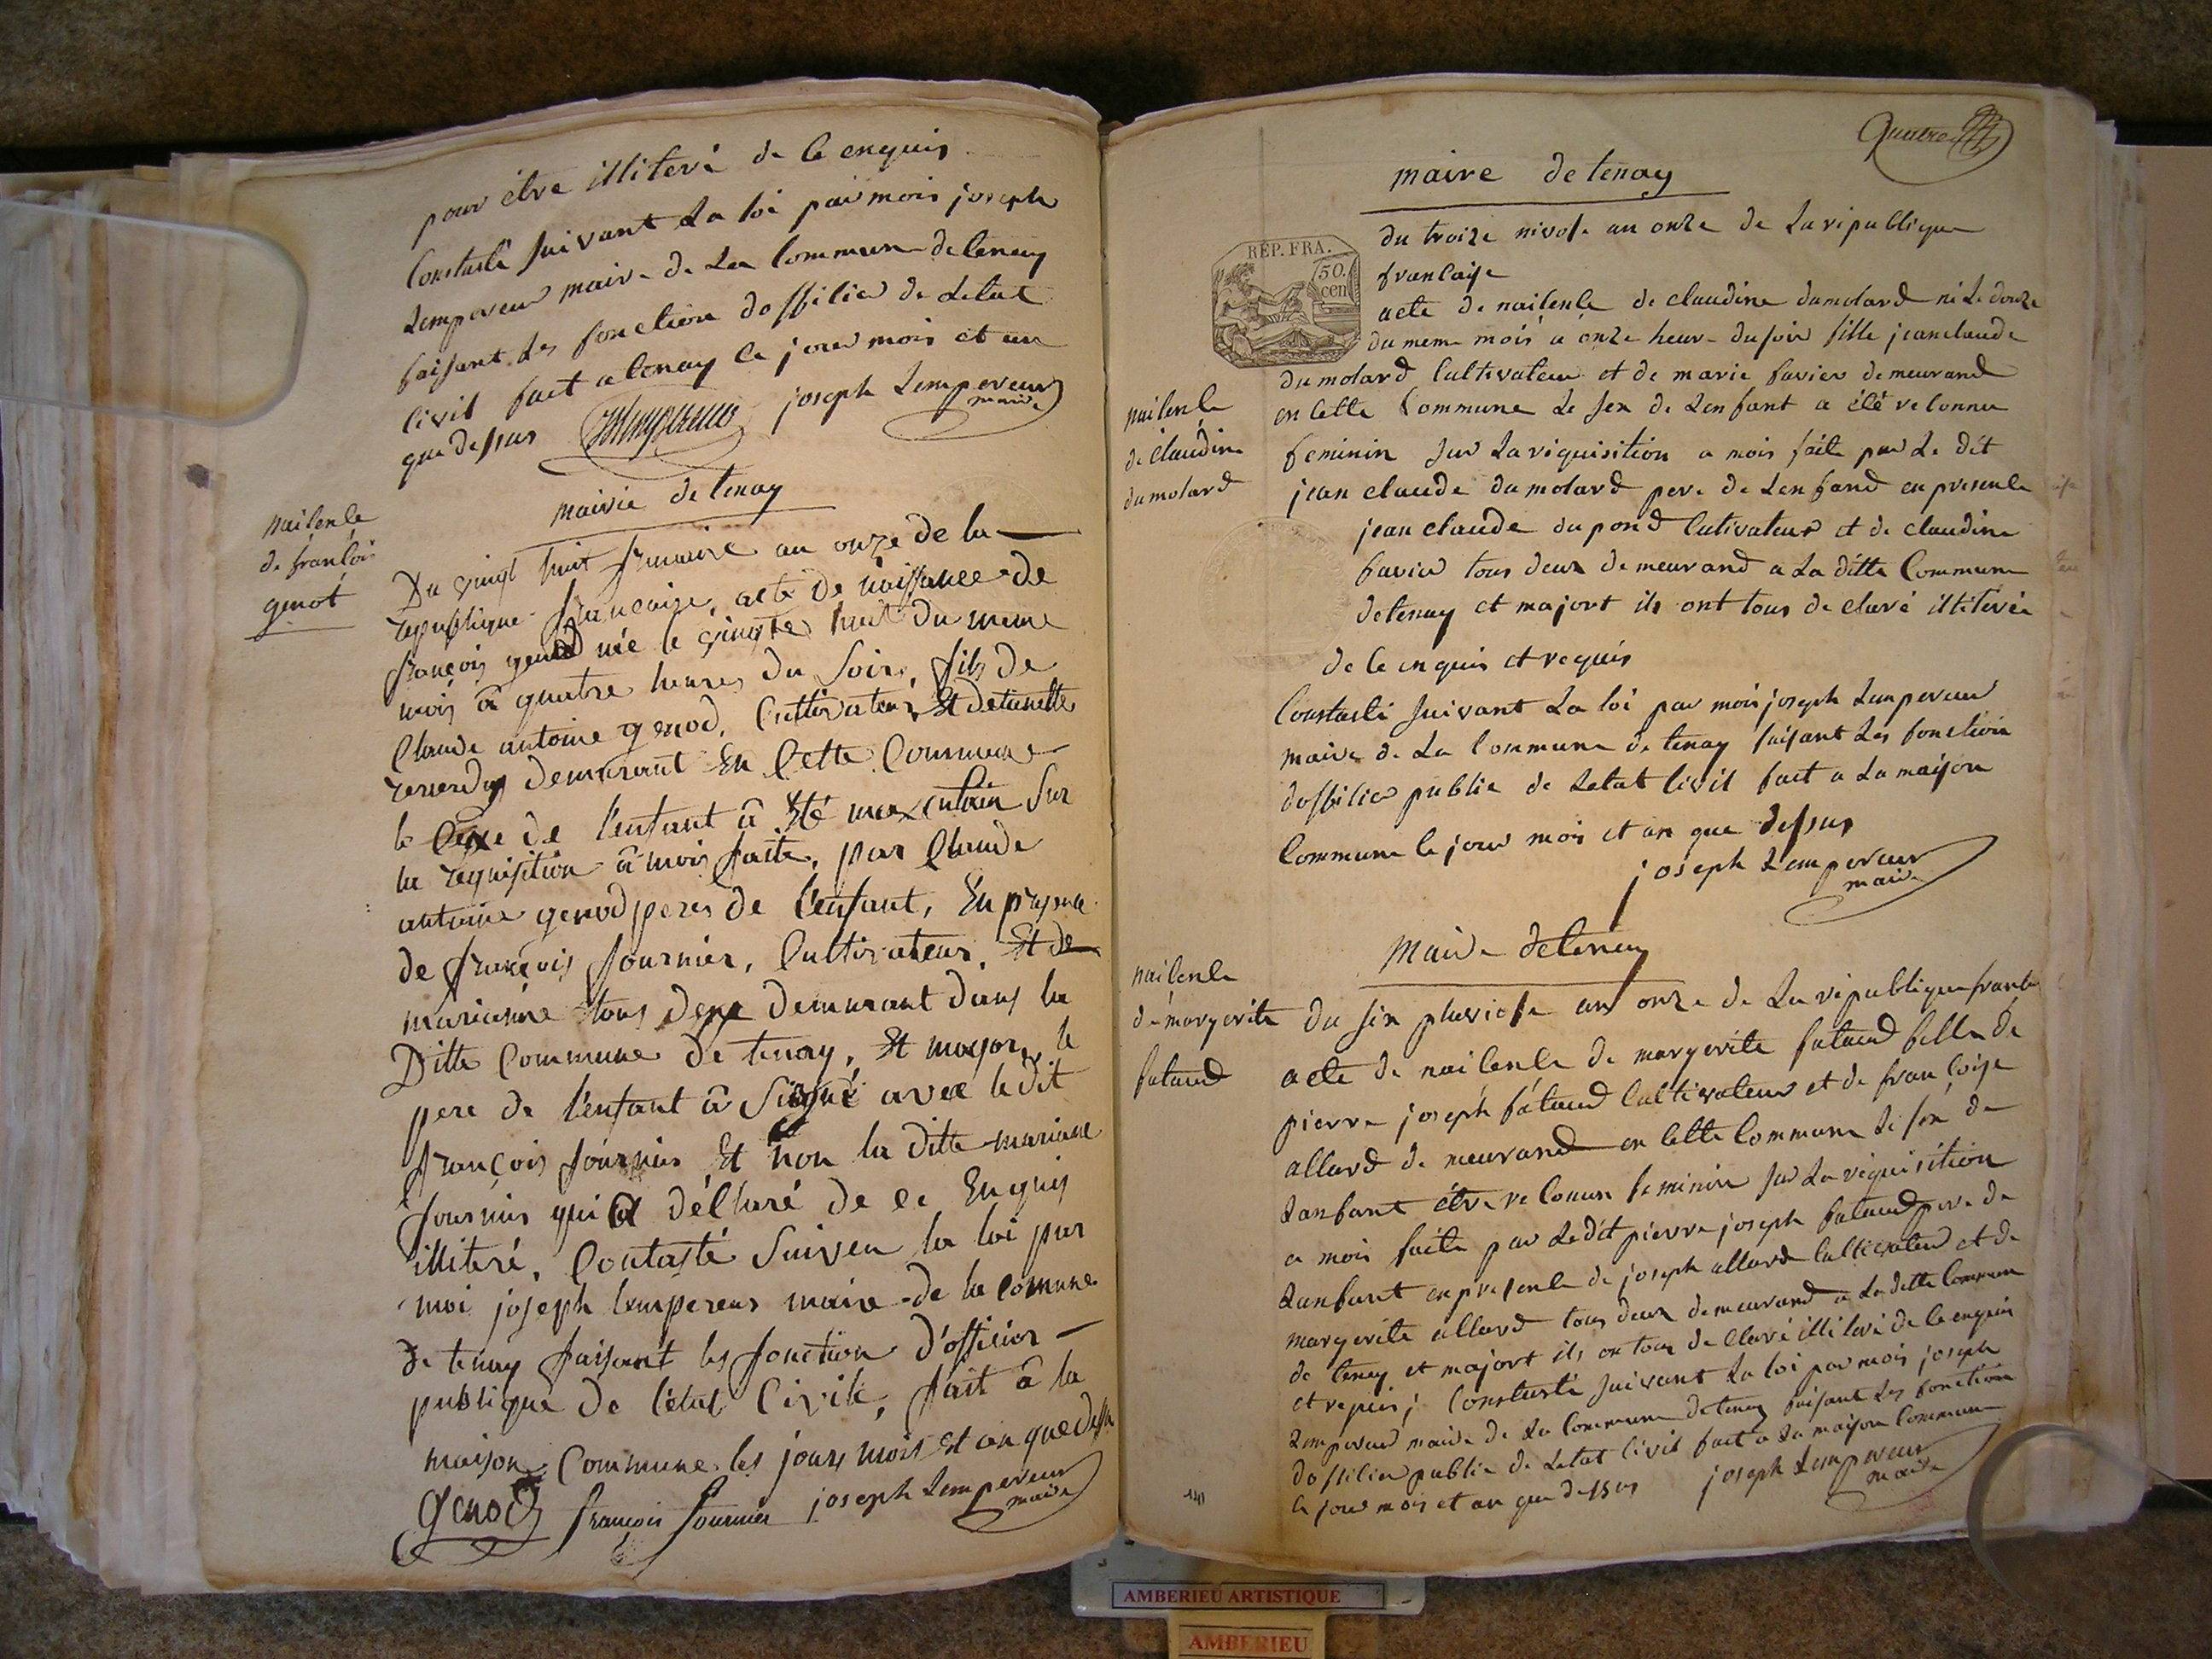 pour etre illiteré de ce enquis
Constasté suivant La loi par mois joseph
Lempereur maire de La Commune de tenay
faisant Les fonction dofficier de Letat
civil fait a tenay le jour mois et an
que dessus joseph Lempereur
maire
mairie de tenay
naisence
de francois
genot
Du vingt huit frimaire an onze de la
republique francaise, acte de naissance de
françois genod née le vingte huit du meme
mois â quatre heures du soir, fils de
Claude antoine genod, Cultivateur, Et detienette
demurant En Cette Commune
le sexe de l'enfant â Eté masculain Sur
la requisition â mois faite, par Claude
antoine genod peres de l'enfant, En presence
de françois fournier, Cultivateur, Et de
marianne tous deux demurant dans la
Ditte Commune de tenay, Et mayor, le
pere de l'enfant â Signé avec le dit
françois fournier Et non la ditte mariane
fournier qui a déClaré de ce Enquis
illiteré, Contasté Suiven la loi par
moi joseph lempereur maire de la comune
de tenay faisant les fonction d'officier
publique de l'état Civile, fait â la
maison Commune les jours mois Et an que dessu
Genod françois fournier joseph Lempereur
maire
Quatre
maire de tenay
REP. FRA.
50.
cen
du treize nivose an onze de La republique
francaise
acte de naisence de claudine dumolard né Le douze
du meme mois a onze heure du soir fille jean claude
dumolard Cultivateur et de marie favier demeurand
en Cette Commune Le sex de Lenfant a été reconnu
feminin sur La requisition a mois faite par Le dit
jean claude dumolard pere de Lenfand en presence
jean claude dupond Cutivateur et de claudine
favier tous deux demeurand a La ditte Commune
de tenay et majort ils ont tous declaré illiterée
de ce enquis et requis
Constasté suivant La loi par mois joseph Lempereur
maire de La Commune de tenay faisant Les fonction
dofficier public de Letat Civil fait a La maison
Commune le jour mois et an que dessus
joseph Lempereur
maire
naisence
de claudine
dumolard
Maire de tenay
naisence
de margerite
futaud
du six pluviose an onze de La republique franca
acte de naisence de margerite futaud fille de
pierre joseph futaud Cultivateur et de françoise
allard demeurand en Cette Commune Le sex de
Lanfant etre reconnu feminin sur La requisition
a mois faite par Ledit pierre joseph futaud pere de
Lanfant en presence de joseph allard Cultivateur et de
margerite allard tous deux demeurand a La ditte Commune
de tenay et majort ils on tous declaré illiteré de ce enquis
et requis; Constasté suivant La loi par mois joseph
Lempereur maire de La Commune de tenay faisant Les fonction
dofficier public de Letat Civil fait a La maison Commune
le jour mois et an que dessus joseph Lempereur
maire
AMBERIEU ARTISTIQUE
AMBERIEU